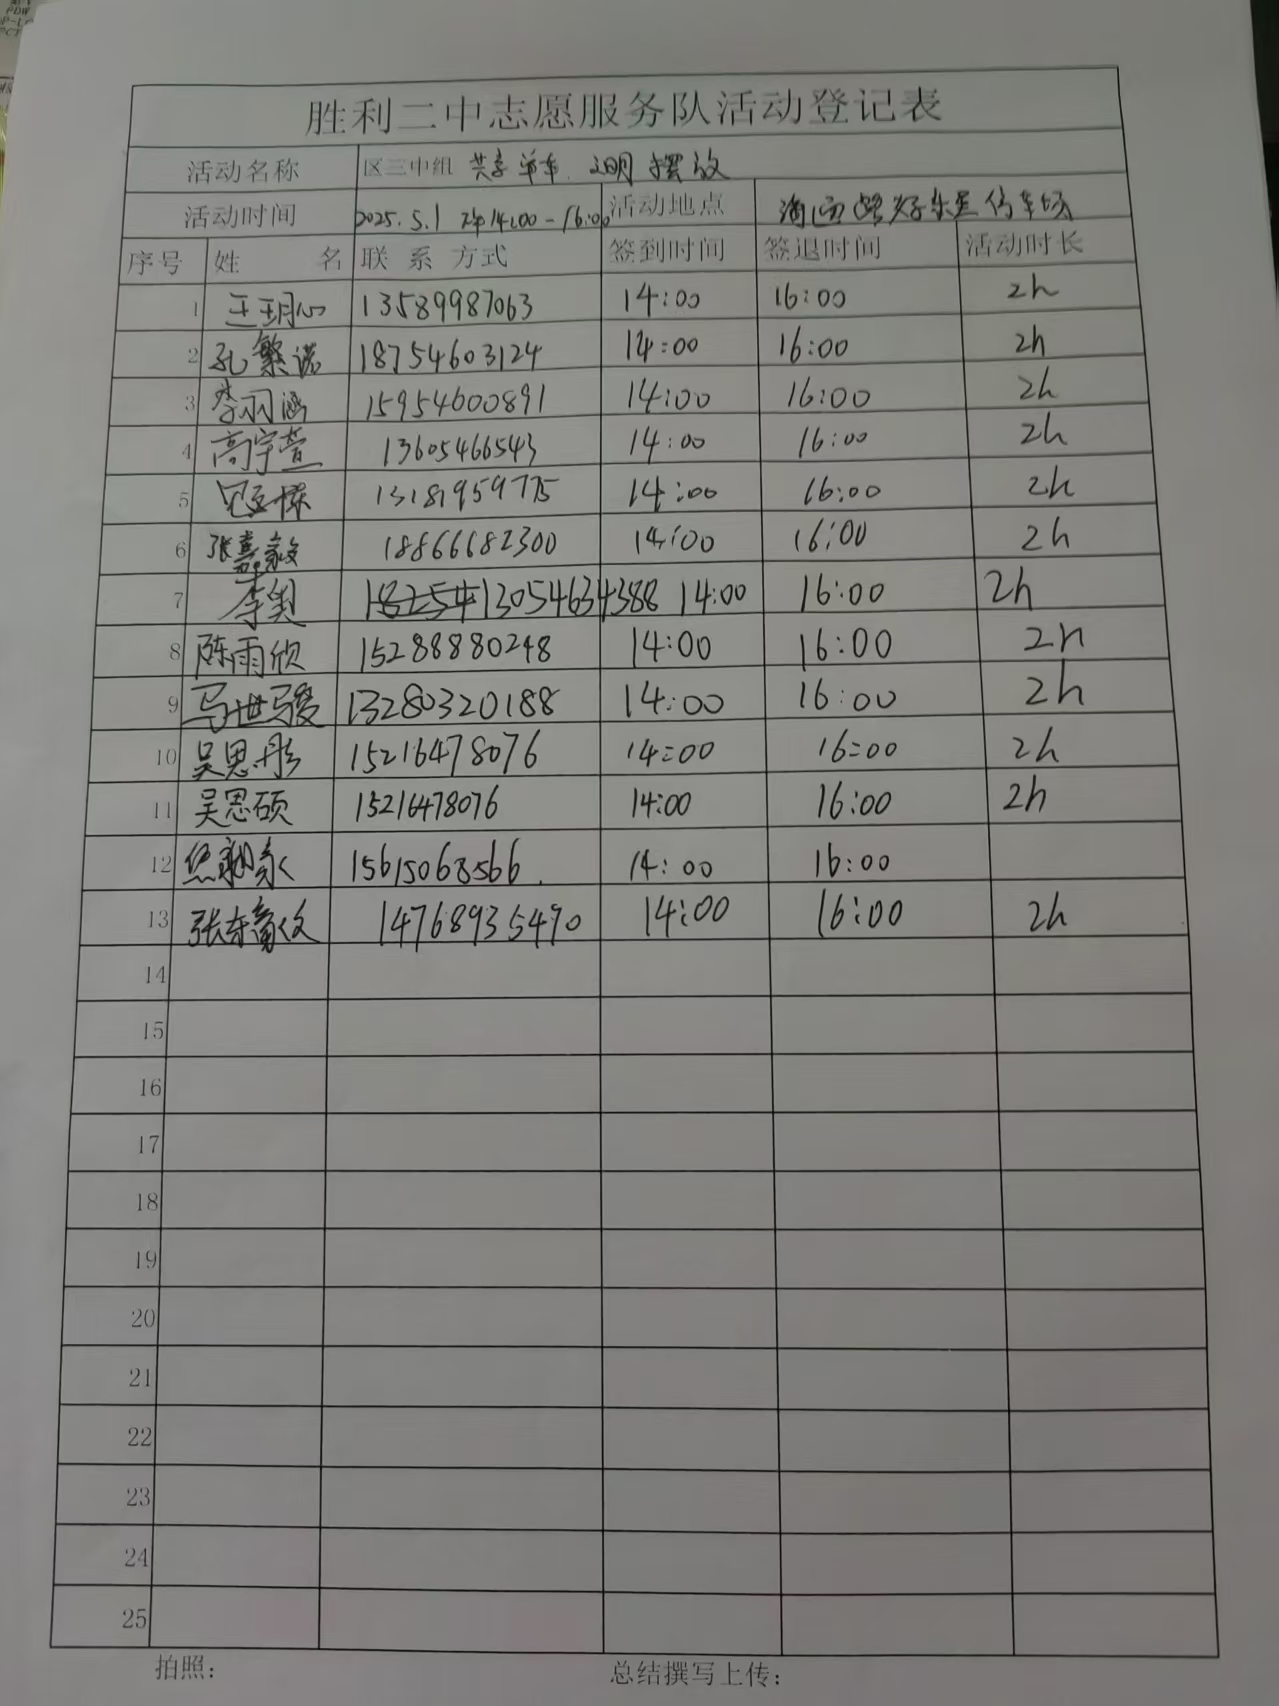 胜利二中志愿服务队活动登记表
活动名称 区三中组 共享单车 文明摆放
活动时间 2025.5.1 下午14:00-16:00 活动地点 路好乐星停车场
序号 姓名 联系方式 签到时间 签退时间 活动时长
1 王玥心 13589987063 14:00 16:00 2h
2 孔繁诺 18754603124 14:00 16:00 2h
3 李羽涵 15954600891 14:00 16:00 2h
4 高宇萱 13605466543 14:00 16:00 2h
5 13181959775 14:00 16:00 2h
6 张嘉毅 18866682300 14:00 16:00 2h
7 李奥 13054634388 14:00 16:00 2h
8 陈雨欣 15288880248 14:00 16:00 2h
9 马世骏 13280320188 14:00 16:00 2h
10 吴思彤 15216478076 14:00 16:00 2h
11 吴恩硕 15216478076 14:00 16:00 2h
12 15615068566. 14:00 16:00
13 张 14768935490 14:00 16:00 2h
14
15
16
17
18
19
20
21
22
23
24
25
拍照: 总结撰写上传: